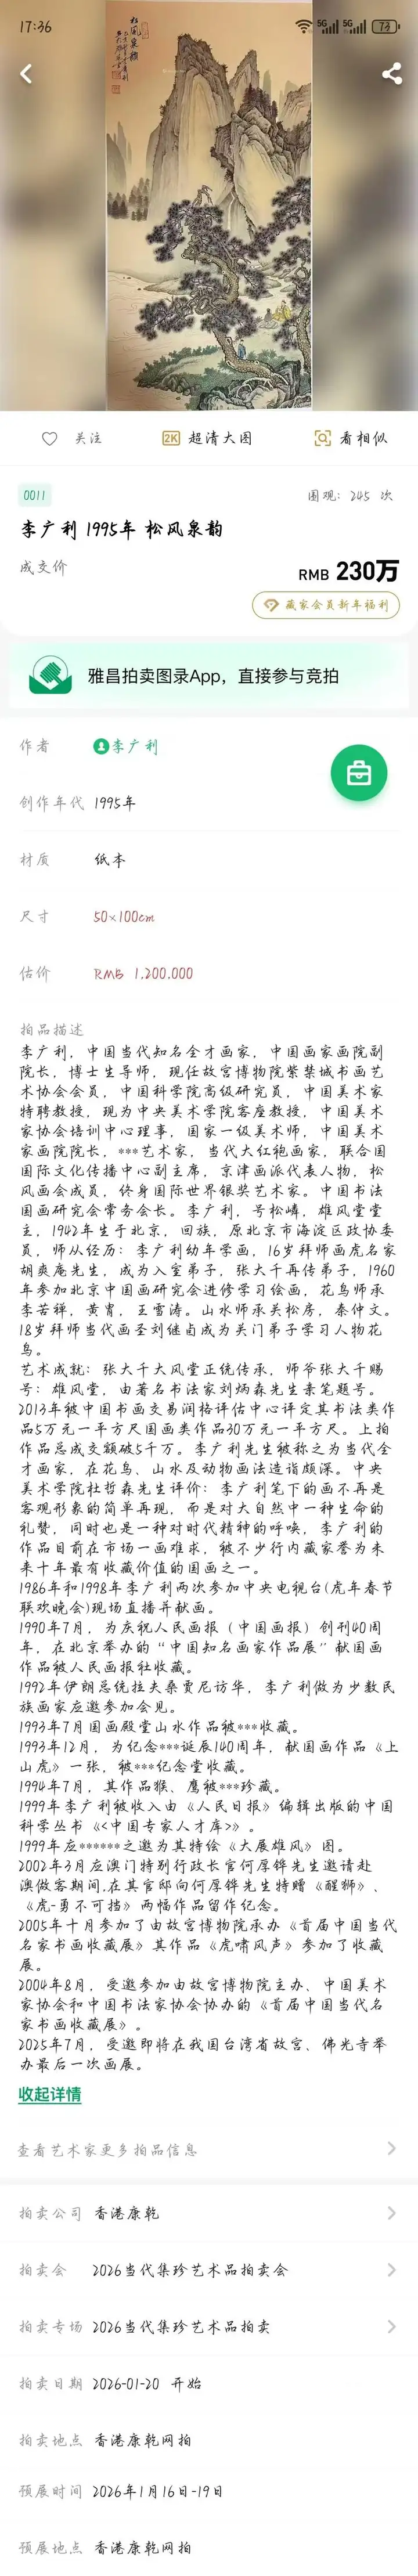 17:36
5G
5G
73
松风泉韵
关注
2K 超清大图
看相似
0011
围观：245 次
李广利 1995年 松风泉韵
成交价
RMB 230万
藏家会员新年福利
雅昌拍卖图录App，直接参与竞拍
作者 李广利
创作年代 1995年
材质 纸本
尺寸 50×100cm
估价 RMB 1,200,000
拍品描述
李广利，中国当代知名全才画家，中国画家画院副
院长，博士生导师，现任故宫博物院紫禁城书画艺
术协会会员，中国科学院高级研究员，中国美术家
特聘教授，现为中央美术学院客座教授，中国美术
家协会培训中心理事，国家一级美术师，中国美术
家画院院长，***艺术家，当代大红袍画家，联合国
国际文化传播中心副主席，京津画派代表人物，松
风画会成员，终身国际世界银奖艺术家。中国书法
国画研究会常务会长。李广利，号松嶂，雄风堂堂
主，1942年生于北京，回族，原北京市海淀区政协委
员，师从经历：李广利幼年学画，16岁拜师画虎名家
胡爽庵先生，成为入室弟子，张大千再传弟子，1960
年参加北京中国画研究会进修学习绘画，花鸟师承
李苦禅，黄胄，王雪涛。山水师承关松房，秦仲文。
18岁拜师当代画圣刘继卣成为关门弟子学习人物花
鸟。
艺术成就：张大千大风堂正统传承，师爷张大千赐
号：雄风堂，由著名书法家刘炳森先生亲笔题号。
2013年被中国书画交易润格评估中心评定其书法类作
品5万元一平方尺国画类作品30万元一平方尺。上拍
作品总成交额破5千万。李广利先生被称之为当代全
才画家，在花鸟、山水及动物画法造诣颇深。中央
美术学院杜哲森先生评价：李广利笔下的画不再是
客观形象的简单再现，而是对大自然中一种生命的
礼赞，同时也是一种对时代精神的呼唤，李广利的
作品目前在市场一画难求，被不少行内藏家誉为未
来十年最有收藏价值的国画之一。
1986年和1998年李广利两次参加中央电视台(虎年春节
联欢晚会)现场直播并献画。
1990年7月，为庆祝人民画报（中国画报）创刊40周
年，在北京举办的“中国知名画家作品展”献国画
作品被人民画报社收藏。
1992年伊朗总统拉夫桑贾尼访华，李广利做为少数民
族画家应邀参加会见。
1993年7月国画殿堂山水作品被***收藏。
1993年12月，为纪念***诞辰140周年，献国画作品《上
山虎》一张，被***纪念堂收藏。
1994年7月，其作品猴、鹰被***珍藏。
1999年李广利被收入由《人民日报》编辑出版的中国
科学丛书《<中国专家人才库>》。
1999年应******之邀为其特绘《大展雄风》图。
2002年3月应澳门特别行政长官何厚铧先生邀请赴
澳做客期间,在其官邸向何厚铧先生特赠《醒狮》、
《虎-勇不可挡》两幅作品留作纪念。
2005年十月参加了由故宫博物院承办《首届中国当代
名家书画收藏展》其作品《虎啸风声》参加了收藏
展。
2004年8月，受邀参加由故宫博物院主办、中国美术
家协会和中国书法家协会协办的《首届中国当代名
家书画收藏展》。
2025年7月，受邀即将在我国台湾省故宫、佛光寺举
办最后一次画展。
收起详情
查看艺术家更多拍品信息
拍卖公司 香港康乾
拍卖会 2026当代集珍艺术品拍卖会
拍卖专场 2026当代集珍艺术品拍卖
拍卖日期 2026-01-20 开始
拍卖地点 香港康乾网拍
预展时间 2026年1月16日-19日
预展地点 香港康乾网拍